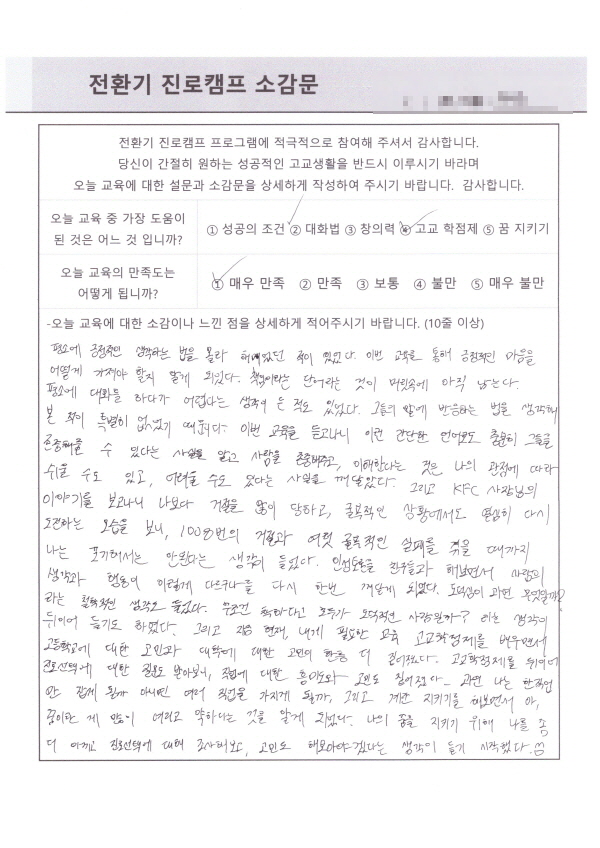 전환기 진로캠프 소감문
전환기 진로캠프 프로그램에 적극적으로 참여해 주셔서 감사합니다.
당신이 간절히 원하는 성공적인 고교생활을 반드시 이루시기 바라며
오늘 교육에 대한 설문과 소감문을 상세하게 작성하여 주시기 바랍니다. 감사합니다.
오늘 교육 중 가장 도움이
된 것은 어느 것 입니까?
① 성공의 조건 ② 대화법 ③ 창의력 ④ 고교 학점제 ⑤ 꿈 지키기
오늘 교육의 만족도는
어떻게 됩니까?
① 매우 만족 ② 만족 ③ 보통 ④ 불만 ⑤ 매우 불만
-오늘 교육에 대한 소감이나 느낀 점을 상세하게 적어주시기 바랍니다. (10줄 이상)
평소에 긍정적인 생각하는 법을 몰라 헤매었던 적이 있었다. 이번 교육을 통해 긍정적인 마음을
어떻게 가져야 할지 알게 되었다. 책임이라는 단어라는 것이 머릿속에 아직 남는다.
평소에 대화를 하다가 어렵다는 생각이 든 적도 있었다. 그들의 말에 반응하는 법을 생각해
본 적이 특별히 없었기 때문이다. 이번 교육을 듣고나니 이런 간단한 언어로도 충분히 그들을
존중해줄 수 있다는 사실을 알고 사람을 존중해주고, 이해한다는 것은 나의 관점에 따라
쉬울 수도 있고, 어려울 수도 있다는 사실을 깨달았다. 그리고 KFC 사장님의
이야기를 보고나니 나보다 거절을 많이 당하고, 굴욕적인 상황에서도 열심히 다시
도전하는 모습을 보니, 1008번의 거절과 여럿 굴욕적인 실패를 겪을 때까지
나는 포기해서는 안된다는 생각이 들었다. 인성토론을 친구들과 해보면서 사람의
생각과 행동이 이렇게 다르구나를 다시 한번 깨닫게 되었다. 도덕성이 과연 무엇일까?
라는 철학적인 생각도 들었다. 무조건 착하다고 모두가 도덕적인 사람일까? 라는 생각이
뒤이어 들기도 하였다. 그리고 지금 현재, 내게 필요한 교육 고교학점제를 배우면서
고등학교에 대한 고민과 대학에 대한 고민이 한층 더 깊어졌다. 고교학점제를 뒤이어
진로선택에 대한 질문도 받아보니, 직업에 대한 흥미도와 고민도 깊어졌다. 과연 나는 한직업
만 갖게 될까 아니면 여러 직업을 가지게 될까, 그리고 계란 지키기를 해보면서 아,
꿈이란 게 많이 여리고 약하다는 것을 알게 되었다. 나의 꿈을 지키기 위해 나를 좀
더 아끼고 진로선택에 대해 조사해보고, 고민도 해보아야겠다는 생각이 들기 시작했다.